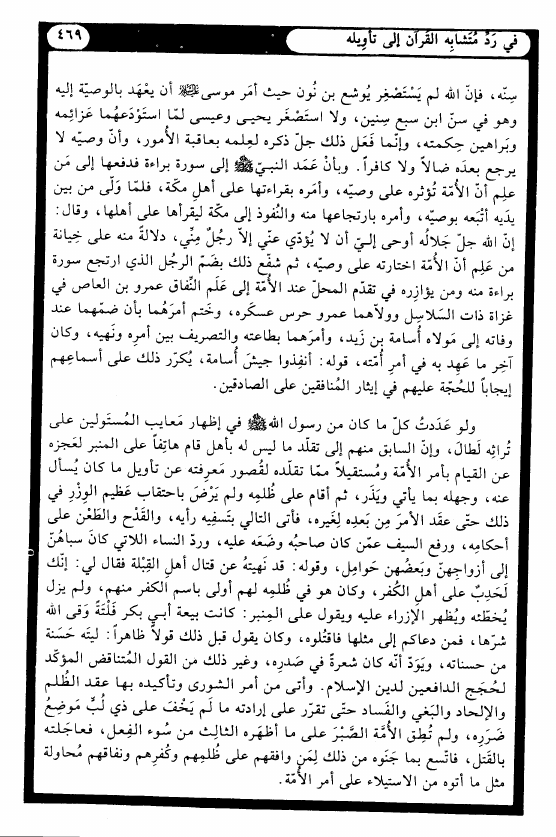 في رَدِّ مُتَشابِه القَرآن إلى تأوِيله
٤٦٩
سِنّه، فإنّ الله لم يَسْتَصْغِر يُوشع بن نُون حيث أمَر موسى ﷺ أن يعْهَد بالوصيّة إليه
وهو في سنّ ابن سبع سِنين، ولا استَصْغَر يحيى وعيسى لمّا استَوْدَعَهُما عَزائمه
وبَراهين حِكمته، وإنّما فَعَل ذلك جلّ ذكره لعِلمه بعاقبة الأُمور، وأنّ وصيّه لا
يرجع بعدَه ضالاً ولا كافراً. وبأنْ عَمَد النبيّ ﷺ إلى سورة براءة فدفعها إلى مَن
علِم أنّ الأُمّة تُؤثره على وصيّه، وأمَره بقراءتها على أهلِ مكّة، فلمّا وَلّى من بين
يدَيه أتْبَعه بوصيّه، وأمره بارتجاعها منه والنُفوذ إلى مكّة ليقرأها على أهلها، وقال:
إنّ الله جلّ جَلالُه أوحى إليّ أن لا يُؤدّي عنّي إلاّ رجُلٌ مِنِّي، دلالةً منه على خِيانة
من عَلِم أنّ الأُمّة اختارته على وصيّه، ثم شفّع ذلك بضَمّ الرجُل الذي ارتجع سورة
براءة منه ومن يؤازِره في تقدّم المحلّ عند الأُمّة إلى عَلَم النِّفاق عمرو بن العاص في
غزاة ذات السَلاسِل وولاّهما عمرو حرس عسكَره، وخَتم أمرَهُما بأن ضمّهما عند
وفاته إلى مَولاه أُسامة بن زَيد، وأمرَهما بطاعته والتصريف بين أمرِه ونَهيه، وكان
آخِر ما عَهِد به في أمرِ أُمّته، قوله: أنفِذوا جيشَ أُسامة، يُكرّر ذلك على أسماعِهم
إيجاباً للحُجّة عليهم في إيثار المُنافقين على الصادقين.
ولو عَدَدتُ كلّ ما كان من رسول الله ﷺ في إظهار مَعايب المُستَولين على
تُراثِه لَطالَ، وإنّ السابق منهم إلى تقلّد ما ليس له بأهل قام هاتِفاً على المنبر لعَجزه
عن القيام بأمر الأُمّة ومُستقيلاً ممّا تقلّده لقُصور مَعرِفته عن تأويل ما كان يُسأل
عنه، وجهلِه بما يأتي ويَذَر، ثم أقام على ظُلمِه ولم يَرْضَ باحتقاب عظيم الوِزْر في
ذلك حتّى عقَد الأمرَ مِن بَعدِه لِغَيره، فأتى التالي بتَسفِيه رأيه، والقَدْح والطَعْن على
أحكامِه، ورفع السيف عمّن كان صاحبُه وضَعه عليه، وردّ النساء اللاتي كان سباهُنّ
إلى أزواجِهنّ وبَعضُهن حَوامِل، وقوله: قد نَهيتُه عن قتال أهلِ القِبْلة فقال لي: إنّك
لَحَدِبٌ على أهلِ الكُفر، وكان هو في ظُلمِه لهم أولى باسم الكفر منهم، ولم يزل
يُخطّئه ويُظهر الإزراء عليه ويقول على المِنبر: كانت بيعة أبي بكر فَلْتَةً وَقى الله
شرّها، فمن دعاكم إلى مثلها فاقتُلوه، وكان يقول قبل ذلك قولاً ظاهراً: ليتَه حَسَنة
من حسناته، ويَوَدّ أنّه كان شعرةً في صَدرِه، وغير ذلك من القول المُتناقض المؤكّد
لحُجَج الدافعين لدين الإسلام. وأتى من أمر الشورى وتأكيده بها عقد الظُلم
والإلحاد والبَغي والفَساد حتّى تقرّر على إرادته ما لَم يَخْفَ على ذي لُبٍّ مَوضِعُ
ضَررِه، ولم تُطِق الأُمّة الصَّبْرَ على ما أظهَره الثالِث من سُوء الفِعل، فعاجَلته
بالقَتل، فاتّسع بما جَنَوه من ذلك لِمَن وافقهم على ظُلمِهم وكُفرِهم ونفاقهم مُحاولة
مثل ما أتوه من الاستيلاء على أمر الأُمّة.